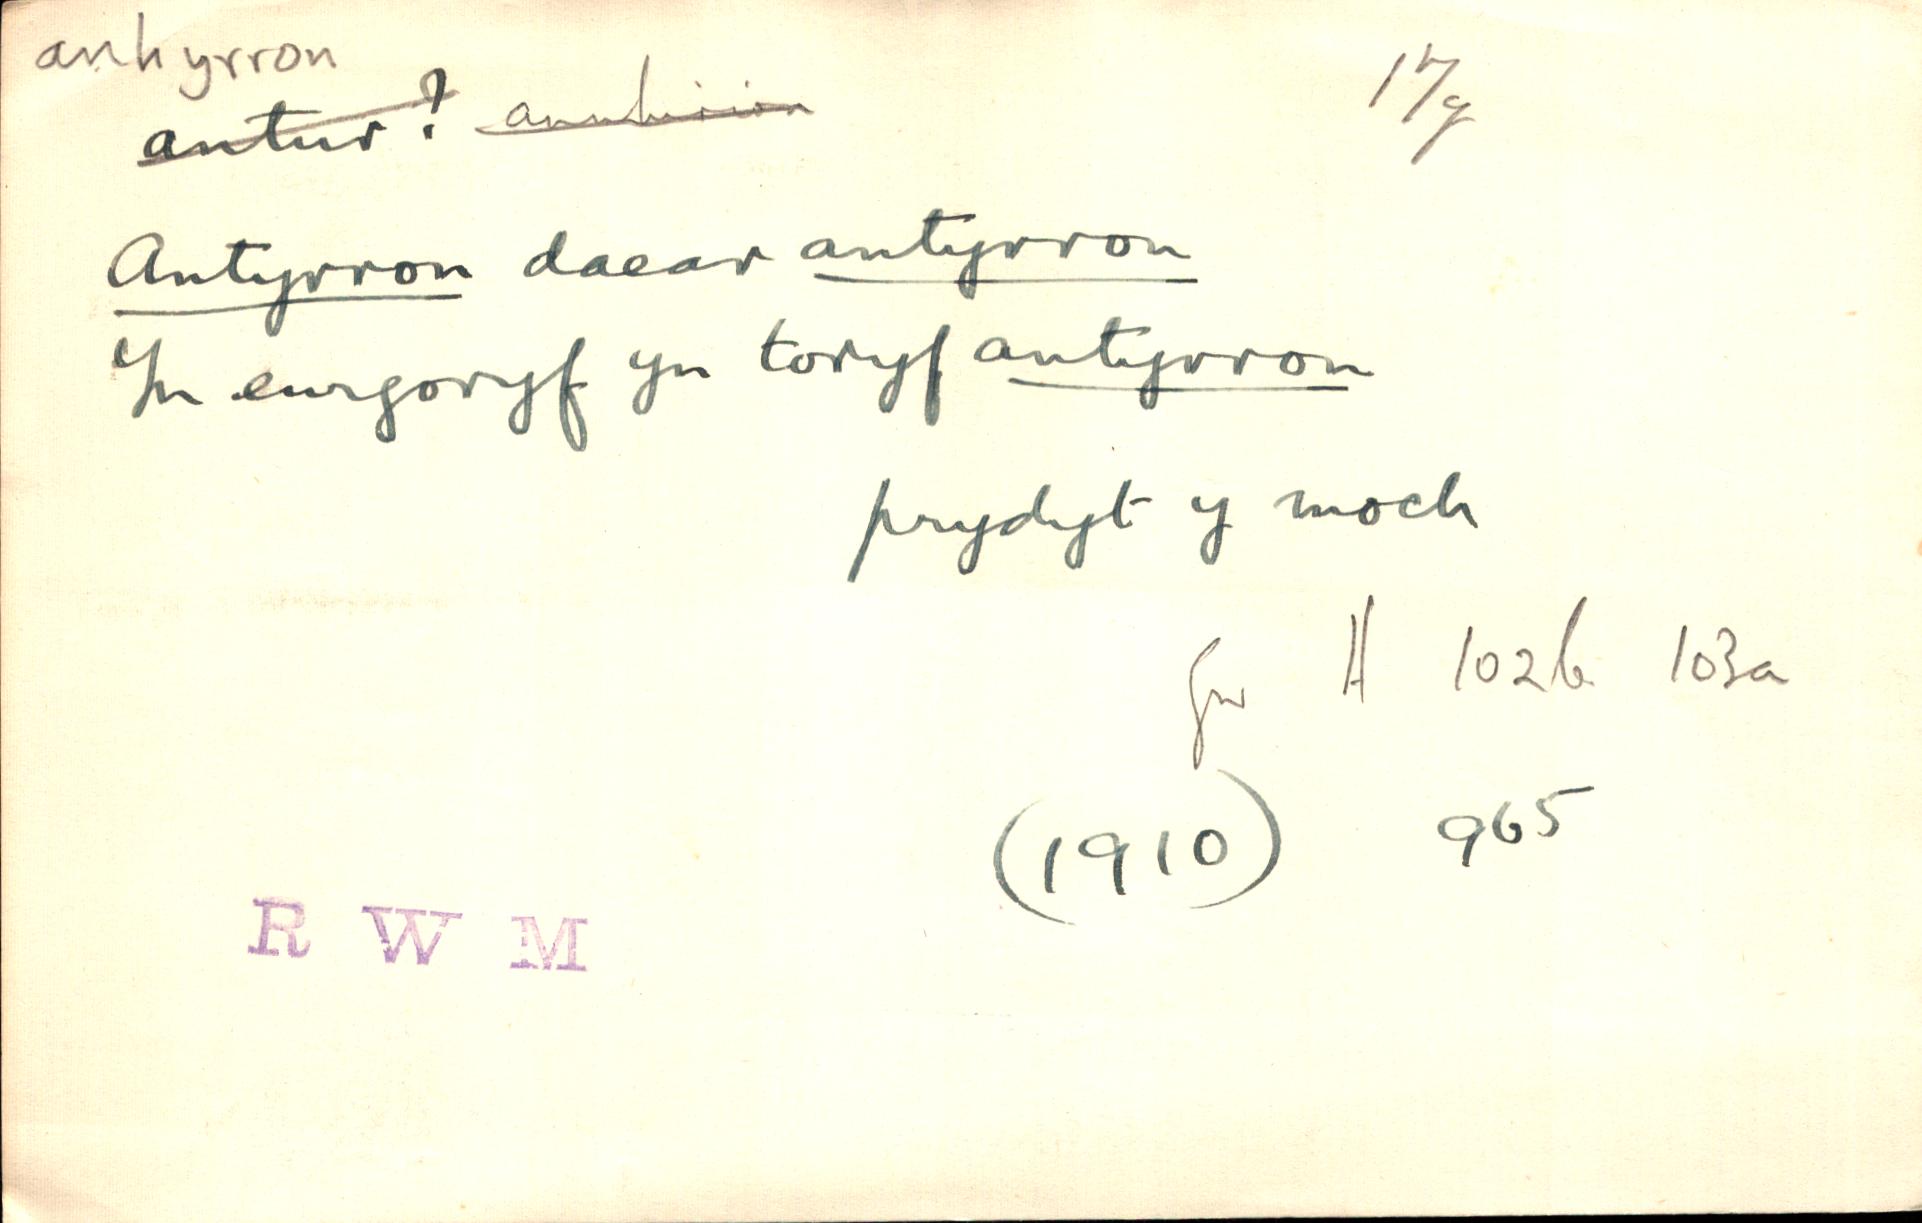 anhyrron
antur?
17/g
Antyrron daear antyrron
Yn eurgoryf yn toryf antyrron
prydyt y moch
gw H 102b 103a
(1910) 965
R W M